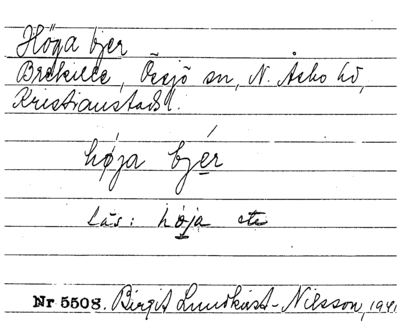 Höga bjer
Brekille, Örsjö sn, N. Åsbo hd,
Kristianstads l.
høja bjér
läs: høja etc
Nr 5508. Birgit Lundkvist-Nilsson, 1941